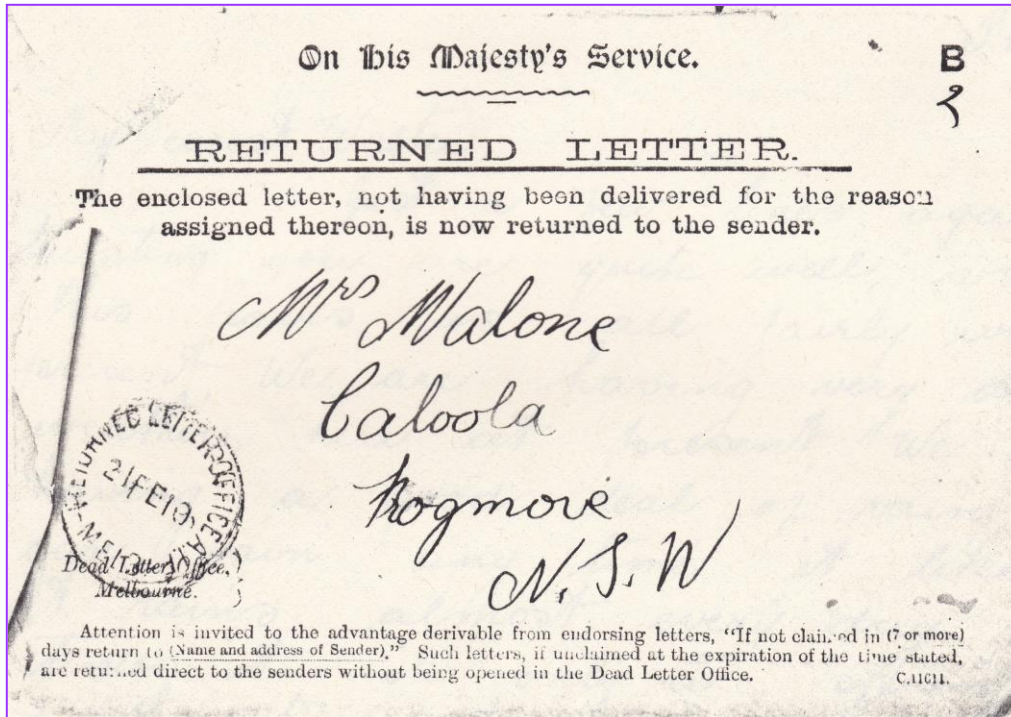 On His Majesty's Service.
B
RETURNED LETTER.
The enclosed letter, not having been delivered for the reason
assigned thereon, is now returned to the sender.
Mrs Malone
Caloola
Frogmore
N.S.W
RETURNED LETTER OFFICE
21 FE 19
Dead Letter Office,
Melbourne.
Attention is invited to the advantage derivable from endorsing letters, “If not claimed in (7 or more)
days return to (Name and address of Sender).” Such letters, if unclaimed at the expiration of the time stated,
are returned direct to the senders without being opened in the Dead Letter Office.
C.11611.